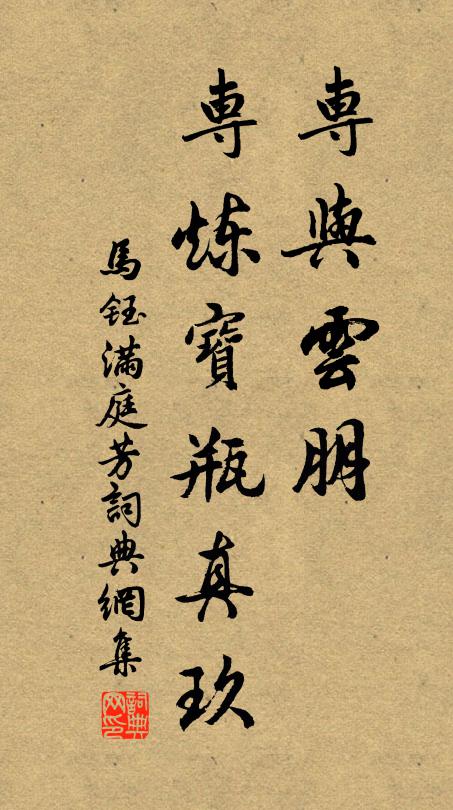 專與雲朋
專炼寶瓶真玖
馬鈺滿庭芳詞典網集
詞典网印